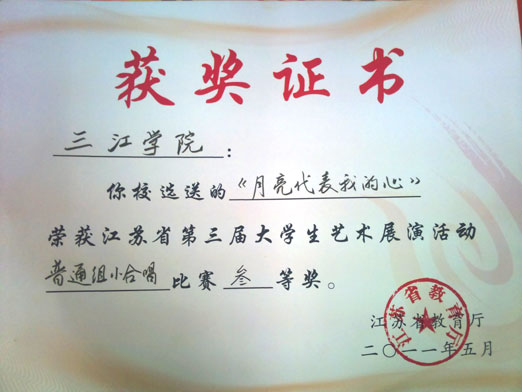 获奖证书
三江学院：
你校选送的《月亮代表我的心》
荣获江苏省第三届大学生艺术展演活动
普通组小合唱比赛叁等奖。
江苏省教育厅
江苏省教育厅
二〇一一年五月